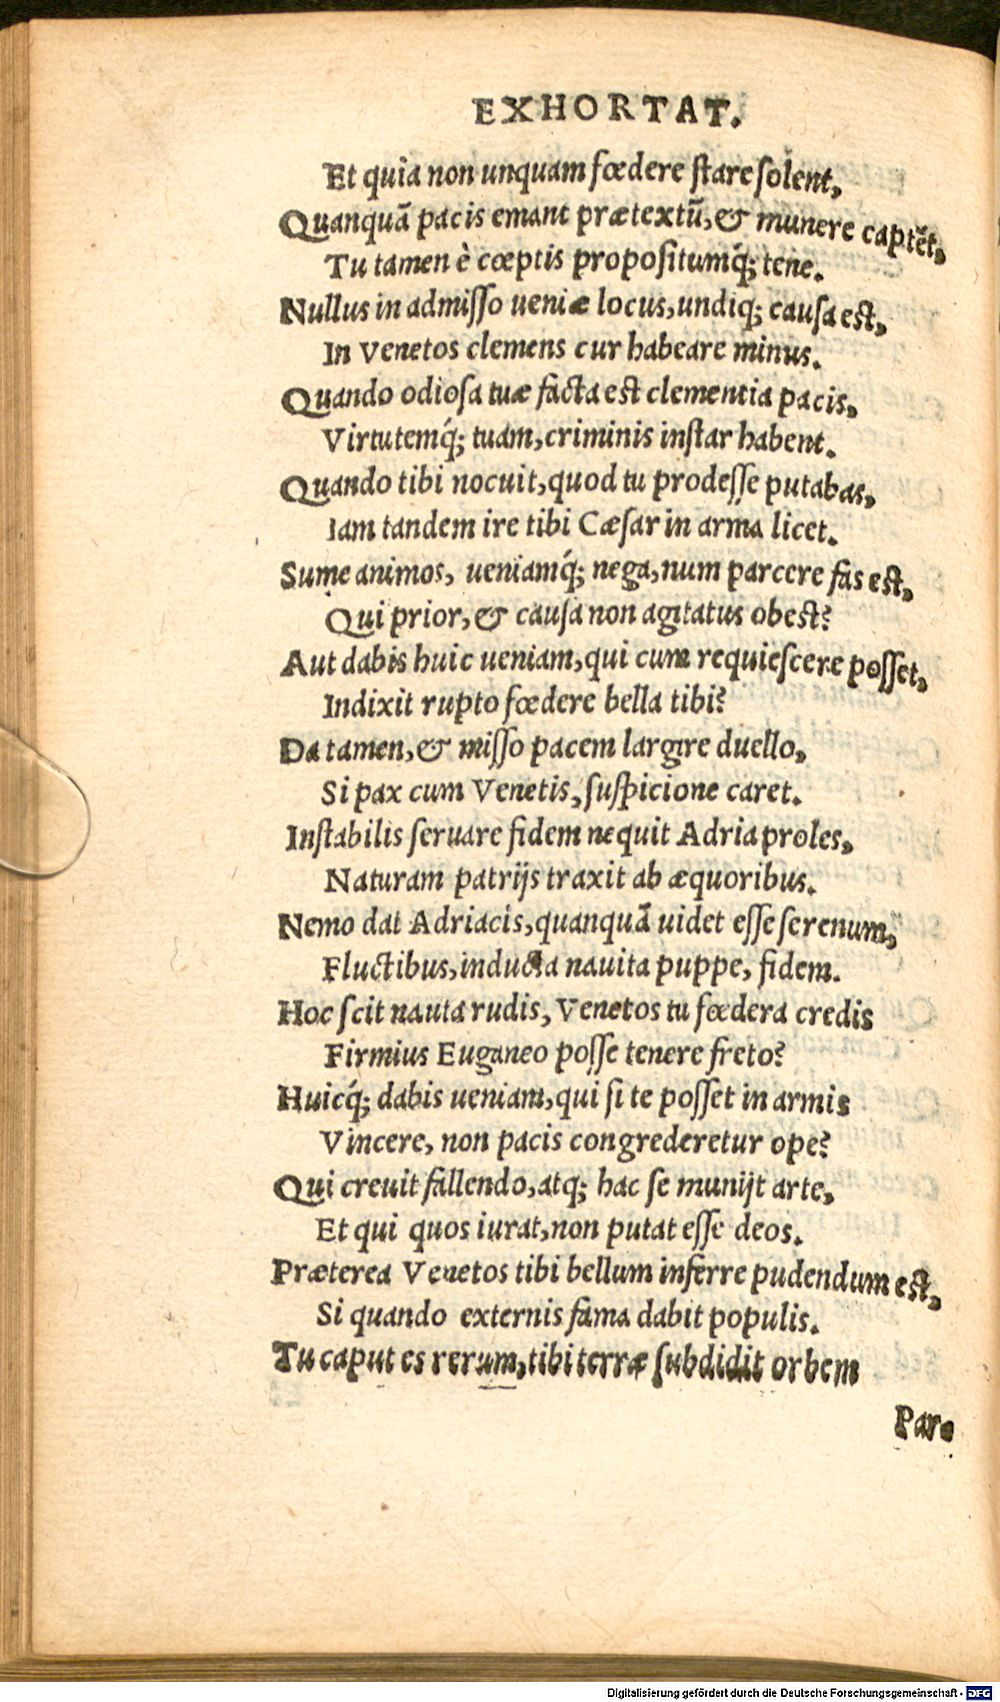 EXHORTAT.
Et quia non unquam fœdere ſtare ſolent,
Quanquā pacis emant prætextū, & munere captēt,
Tu tamen è cœptis propoſitumq́; tene.
Nullus in admiſſo ueniæ locus, undiq; cauſa eſt,
In Venetos clemens cur habeare minus.
Quando odioſa tuæ facta eſt clementia pacis,
Virtutemq́; tuam, criminis inſtar habent.
Quando tibi nocuit, quod tu prodeſſe putabas,
Iam tandem ire tibi Cæſar in arma licet.
Sume animos, ueniamq́; nega, num parcere fas eſt,
Qui prior, & cauſa non agitatus obeſt?
Aut dabis huic ueniam, qui cum requieſcere poſſet,
Indixit rupto fœdere bella tibi?
Da tamen, & miſſo pacem largire duello,
Si pax cum Venetis, ſuſpicione caret.
Inſtabilis ſeruare fidem nequit Adria proles,
Naturam patrijs traxit ab æquoribus.
Nemo dat Adriacis, quanquā uidet eſſe ſerenum,
Fluctibus, inducta nauita puppe, fidem.
Hoc ſcit nauta rudis, Venetos tu fœdera credis
Firmius Euganeo poſſe tenere freto?
Huicq́; dabis ueniam, qui ſi te poſſet in armis
Vincere, non pacis congrederetur ope?
Qui creuit fallendo, atq; hac ſe munijt arte,
Et qui quos iurat, non putat eſſe deos.
Præterea Venetos tibi bellum inferre pudendum eſt,
Si quando externis fama dabit populis.
Tu caput es rerum, tibi terræ ſubdidit orbem
Par-
Digitalisierung gefördert durch die Deutsche Forschungsgemeinschaft - DFG